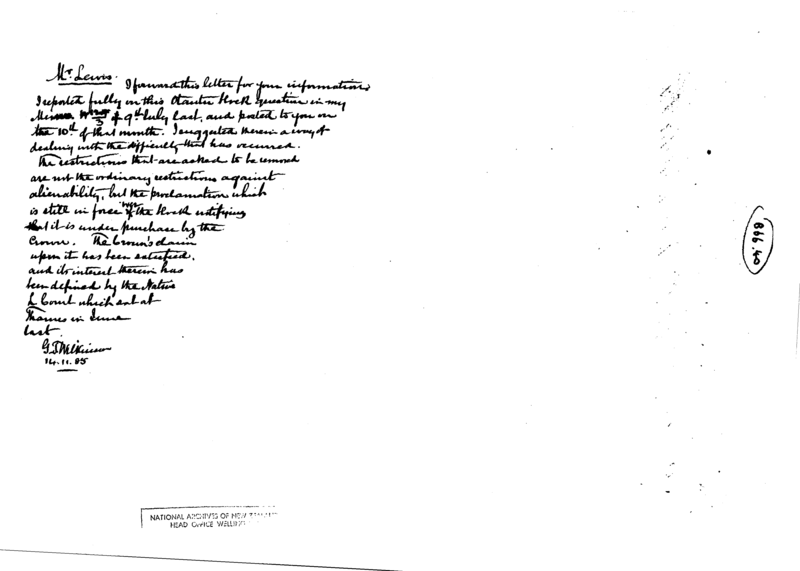 Mr. Lewis.
I forward this letter for your information
I reported fully in this Otautu block question in my
of 9th July last, and posted to you on
the 10th of that month. I suggested therein a way of
dealing with the difficulty that has occurred.
The restrictions that are asked to be removed
are not the ordinary restrictions against
alienability, but the proclamation which
is still in force over the block notifying
that it is under purchase by the
Crown. The Crown's claim
upon it has been satisfied,
and its interest therein has
been defined by the Native
L Court which sat at
Thames in June
last.
G. T. Wilkinson
14.11.85
866.40
NATIONAL ARCHIVES OF NEW
HEAD OFFICE